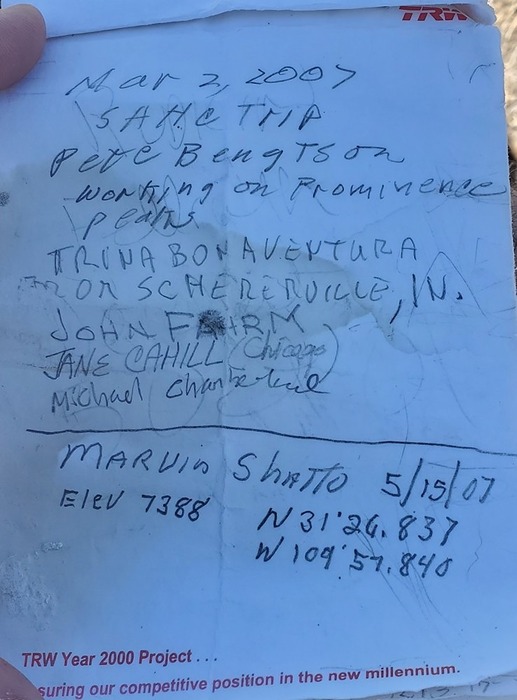 TRW
Mar 2, 2007
SAHC TRIP
Pete Bengtson
working on Prominence
peaks
TRINA BONAVENTURA
FROM SCHERERVILLE, IN.
JOHN
JANE CAHILL (Chicago)
Michael
MARVIN SHATTO 5/15/07
Elev 7388 N 31°26.837
W 109°57.840
TRW Year 2000 Project . . .
suring our competitive position in the new millennium.